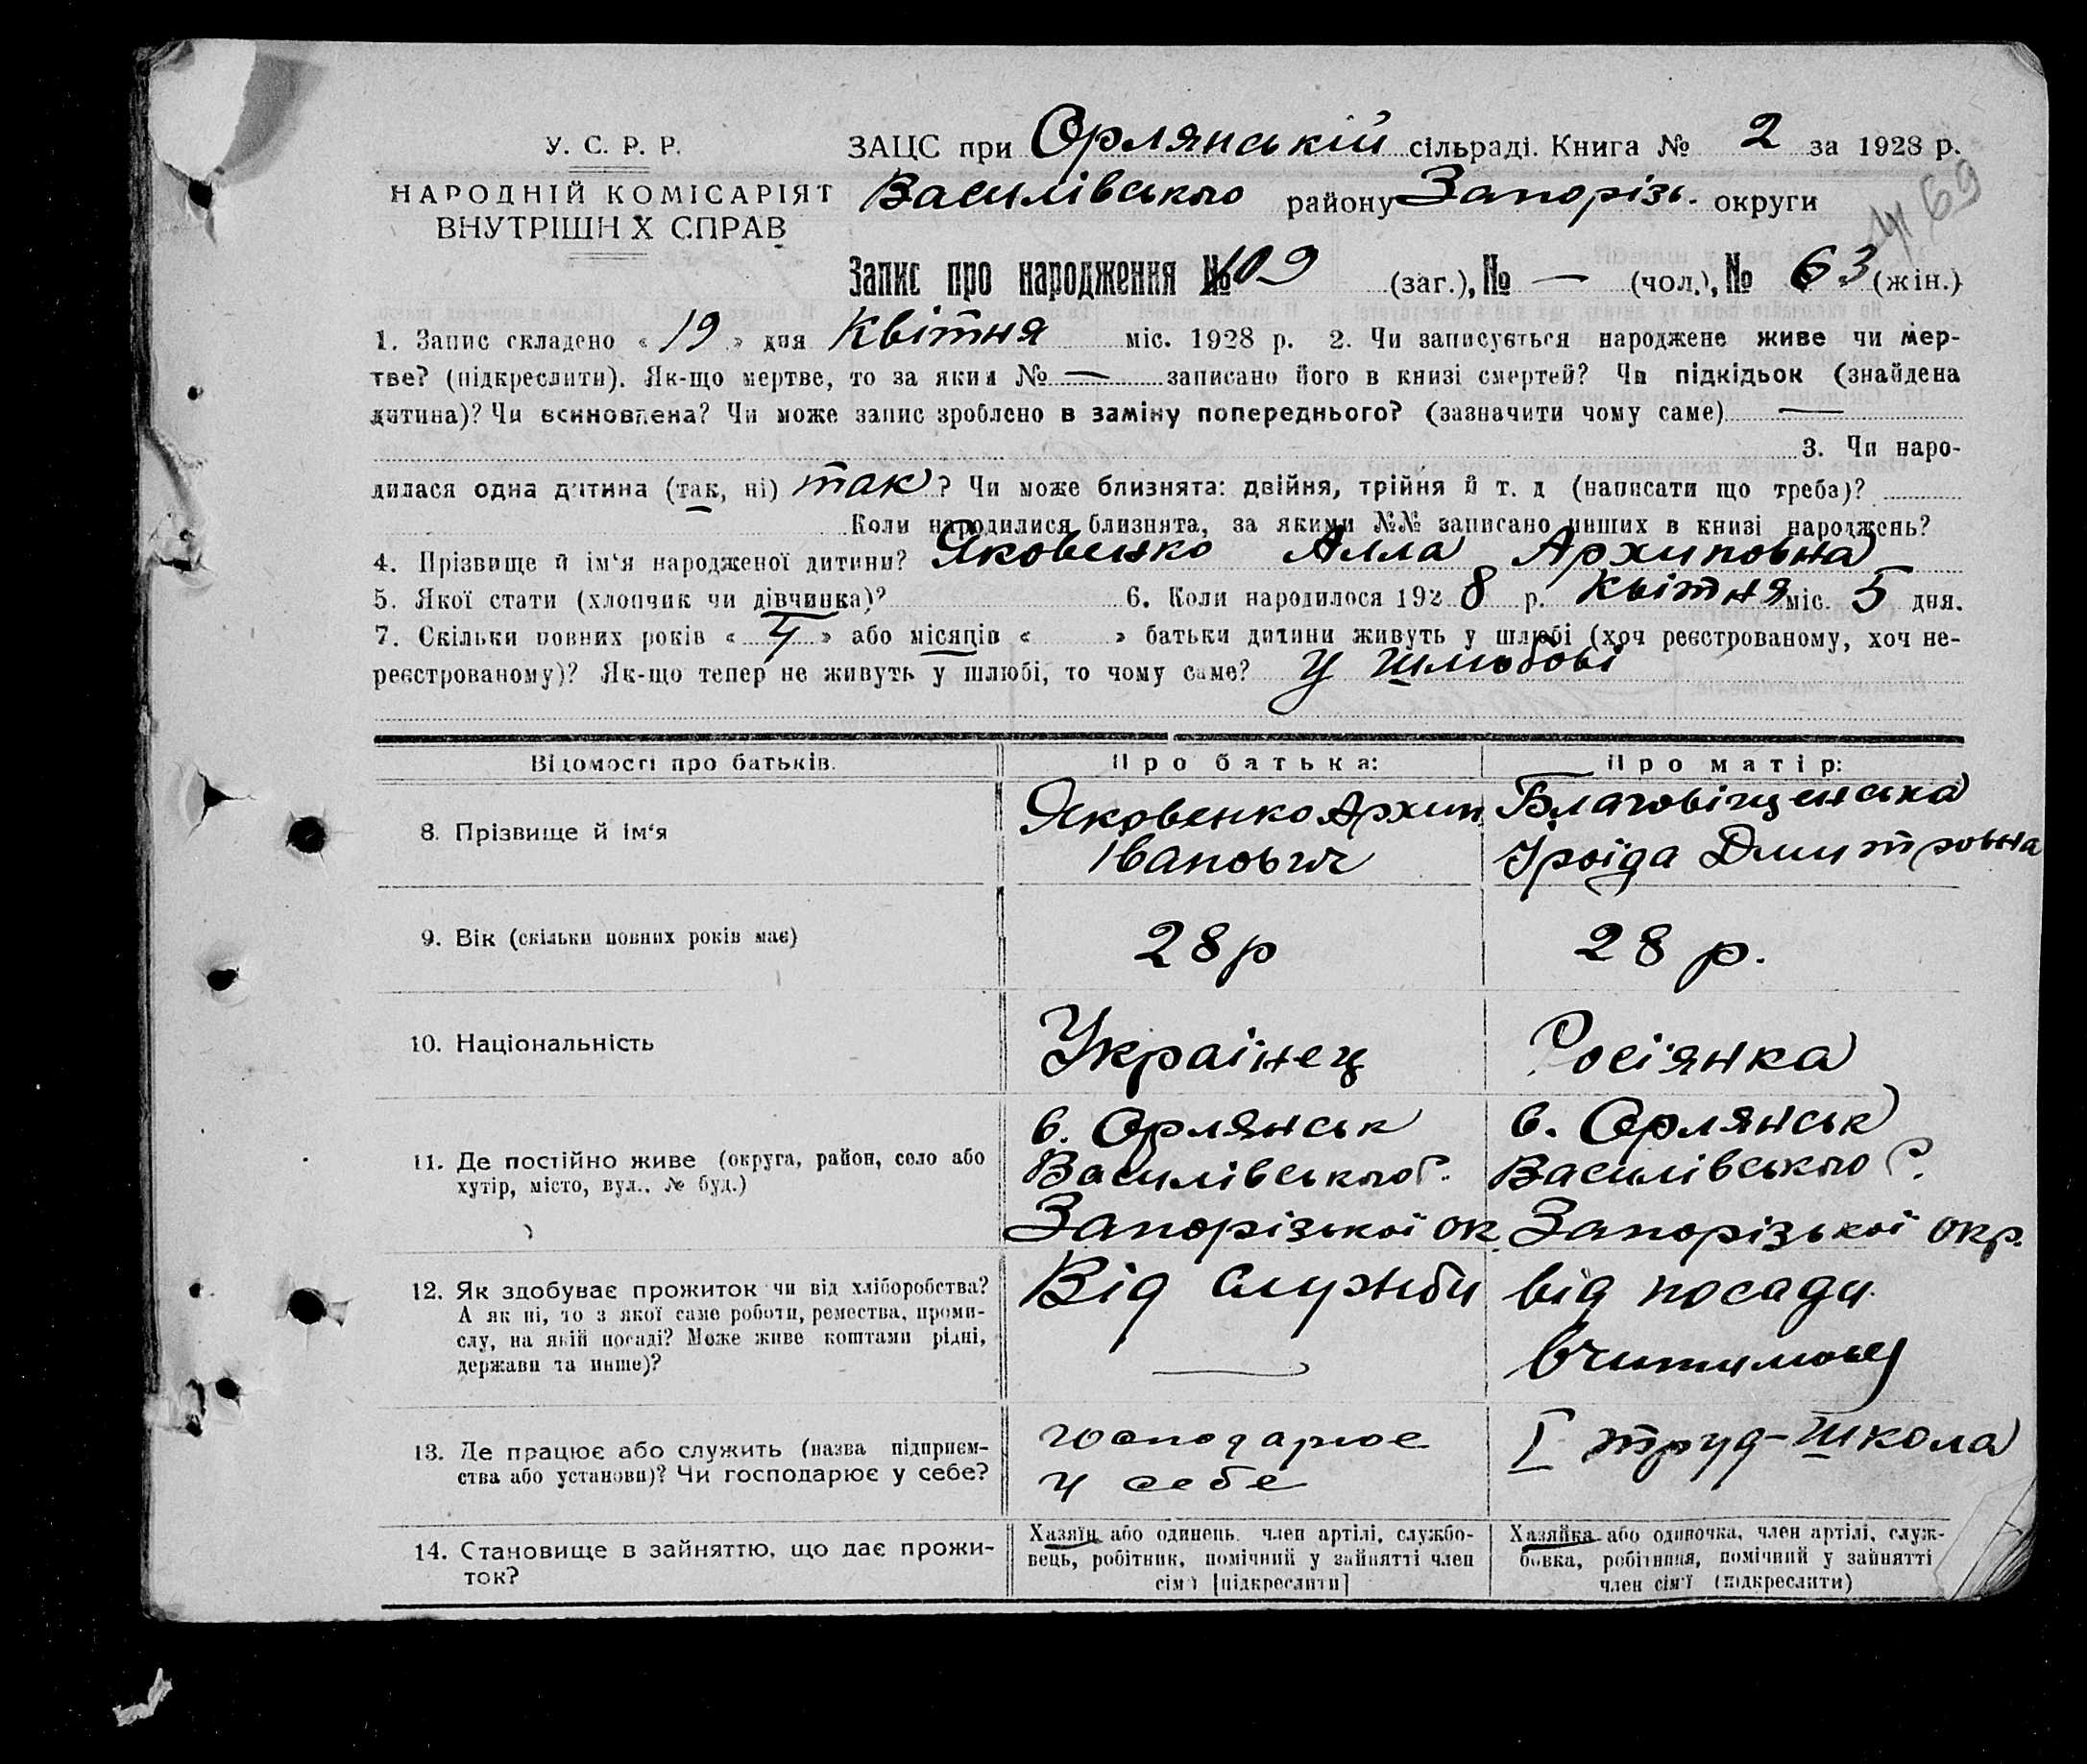 У. С. Р. Р.
НАРОДНІЙ КОМІСАРІЯТ
ВНУТРІШН Х СПРАВ
ЗАЦС при Орлянській сільраді. Книга № 2 за 1928 р.
Василівського району Запорізь. округи
69
Запис про народження № 109 (заг.), № — (чол.), № 63 (жін.)
1. Запис складено « 19 » дня Квітня міс. 1928 р. 2. Чи записується народжене живе чи мер-
тве? (підкреслити). Як-що мертве, то за яким № — записано його в книзі смертей? Чи підкідьок (знайдена
дитина)? Чи всиновлена? Чи може запис зроблено в заміну попереднього? (зазначити чому саме) —
3. Чи наро-
дилася одна дитина (так, ні) так ? Чи може близнята: двійня, трійня й т. д (написати що треба)?
Коли народилися близнята, за якими №№ записано инших в книзі народжень?
4. Прізвище й ім‘я народженої дитини? Яковенко Алла Архиповна
5. Якої стати (хлопчик чи дівчинка)? 6. Коли народилося 192 8 р. Квітня міс. 5 дня.
7. Скільки повних років « 4 » або місяців « » батьки дитини живуть у шлюбі (хоч реєстрованому, хоч не-
реєстрованому)? Як-що тепер не живуть у шлюбі, то чому саме? У шлюбові
Відомості про батьків. Про батька: Про матір:
8. Прізвище й ім‘я
Яковенко Архип
Іванович
Благовіщенська
Іроїда Дмитровна
9. Вік (скільки повних років має)
28 р
28 р.
10. Національність
Украінец
Росіянка
11. Де постійно живе (округа, район, село або
хутір, місто, вул., № буд.)
в. Орлянськ
Василівського Р.
Запорізької ок.
в. Орлянськ
Василівського Р.
Запорізькоі окр.
12. Як здобуває прожиток чи від хліборобства?
А як ні, то з якої саме роботи, ремества, проми-
слу, на якій посаді? Може живе коштами рідні,
держави та инше)?
Від служби
від посади
вчительці
13. Де працює або служить (назва підприєм-
ства або установи)? Чи господарює у себе?
господарює
у себе
І труд-школа
14. Становище в зайняттю, що дає прожи-
ток?
Хазяїн або одинець, член артілі, службо-
вець, робітник, помічний у зайнятті член
сім‘ї [підкреслити]
Хазяйка або одиночка, член артілі, служ-
бовка, робітниця, помічний у зайнятті
член сім‘ї (підкреслити)